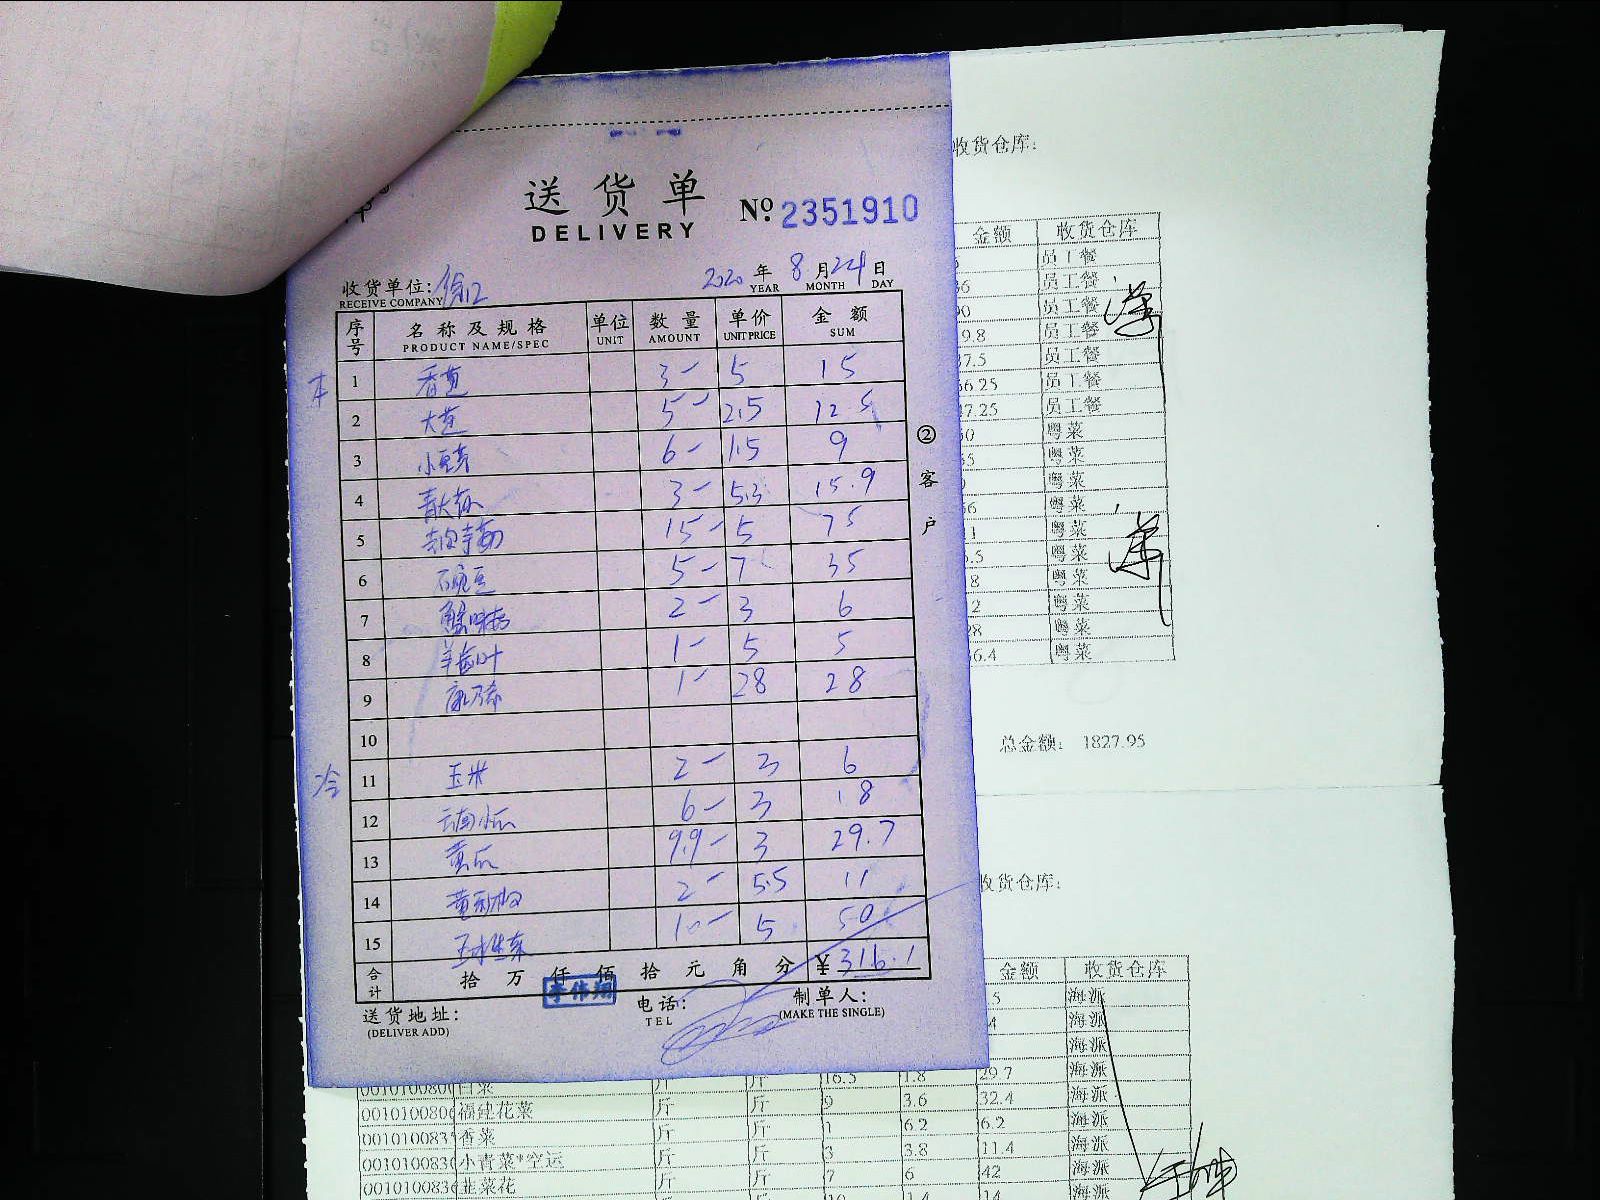 送货单
DELIVERY
No. 2351910
收货单位:
RECEIVE COMPANY
2020 年 8 月 24 日
YEAR MONTH DAY
序号 名称及规格 单位 数量 单价 金额
PRODUCT NAME/SPEC UNIT AMOUNT UNIT PRICE SUM
本
1 香葱 3- 5 15
2 大葱 5- 2.5 12.5
3 小豆芽 6- 1.5 9
4 3- 5.3 15.9
5 15- 5 75
6 5- 7 35
7 2- 3 6
8 1- 5 5
9 康乃馨 1- 28 28
10
冷
11 玉米 2- 3 6
12 云南小瓜 6- 3 18
13 黄瓜 9.9- 3 29.7
14 2- 5.5 11
15 10- 5 50
合计 拾 万 仟 佰 拾 元 角 分 ¥316.1
李伟翔
送货地址:
(DELIVER ADD)
电话:
TEL
制单人:
(MAKE THE SINGLE)
②客户
收货仓库:
金额 收货仓库
员工餐
员工餐
员工餐
9.8 员工餐
7.5 员工餐
6.25 员工餐
7.25 员工餐
粤菜
粤菜
粤菜
粤菜
粤菜
粤菜
粤菜
粤菜
粤菜
6.4 粤菜
总金额: 1827.95
收货仓库:
金额 收货仓库
海派
海派
海派
白菜 斤 斤 16.5 1.8 29.7 海派
001010080 福建花菜 斤 斤 9 3.6 32.4 海派
001010083 香菜 斤 斤 1 6.2 6.2 海派
001010083 小青菜*空运 斤 斤 3 3.8 11.4 海派
001010083 韭菜花 斤 斤 7 6 42 海派
10 1.4 14 海派